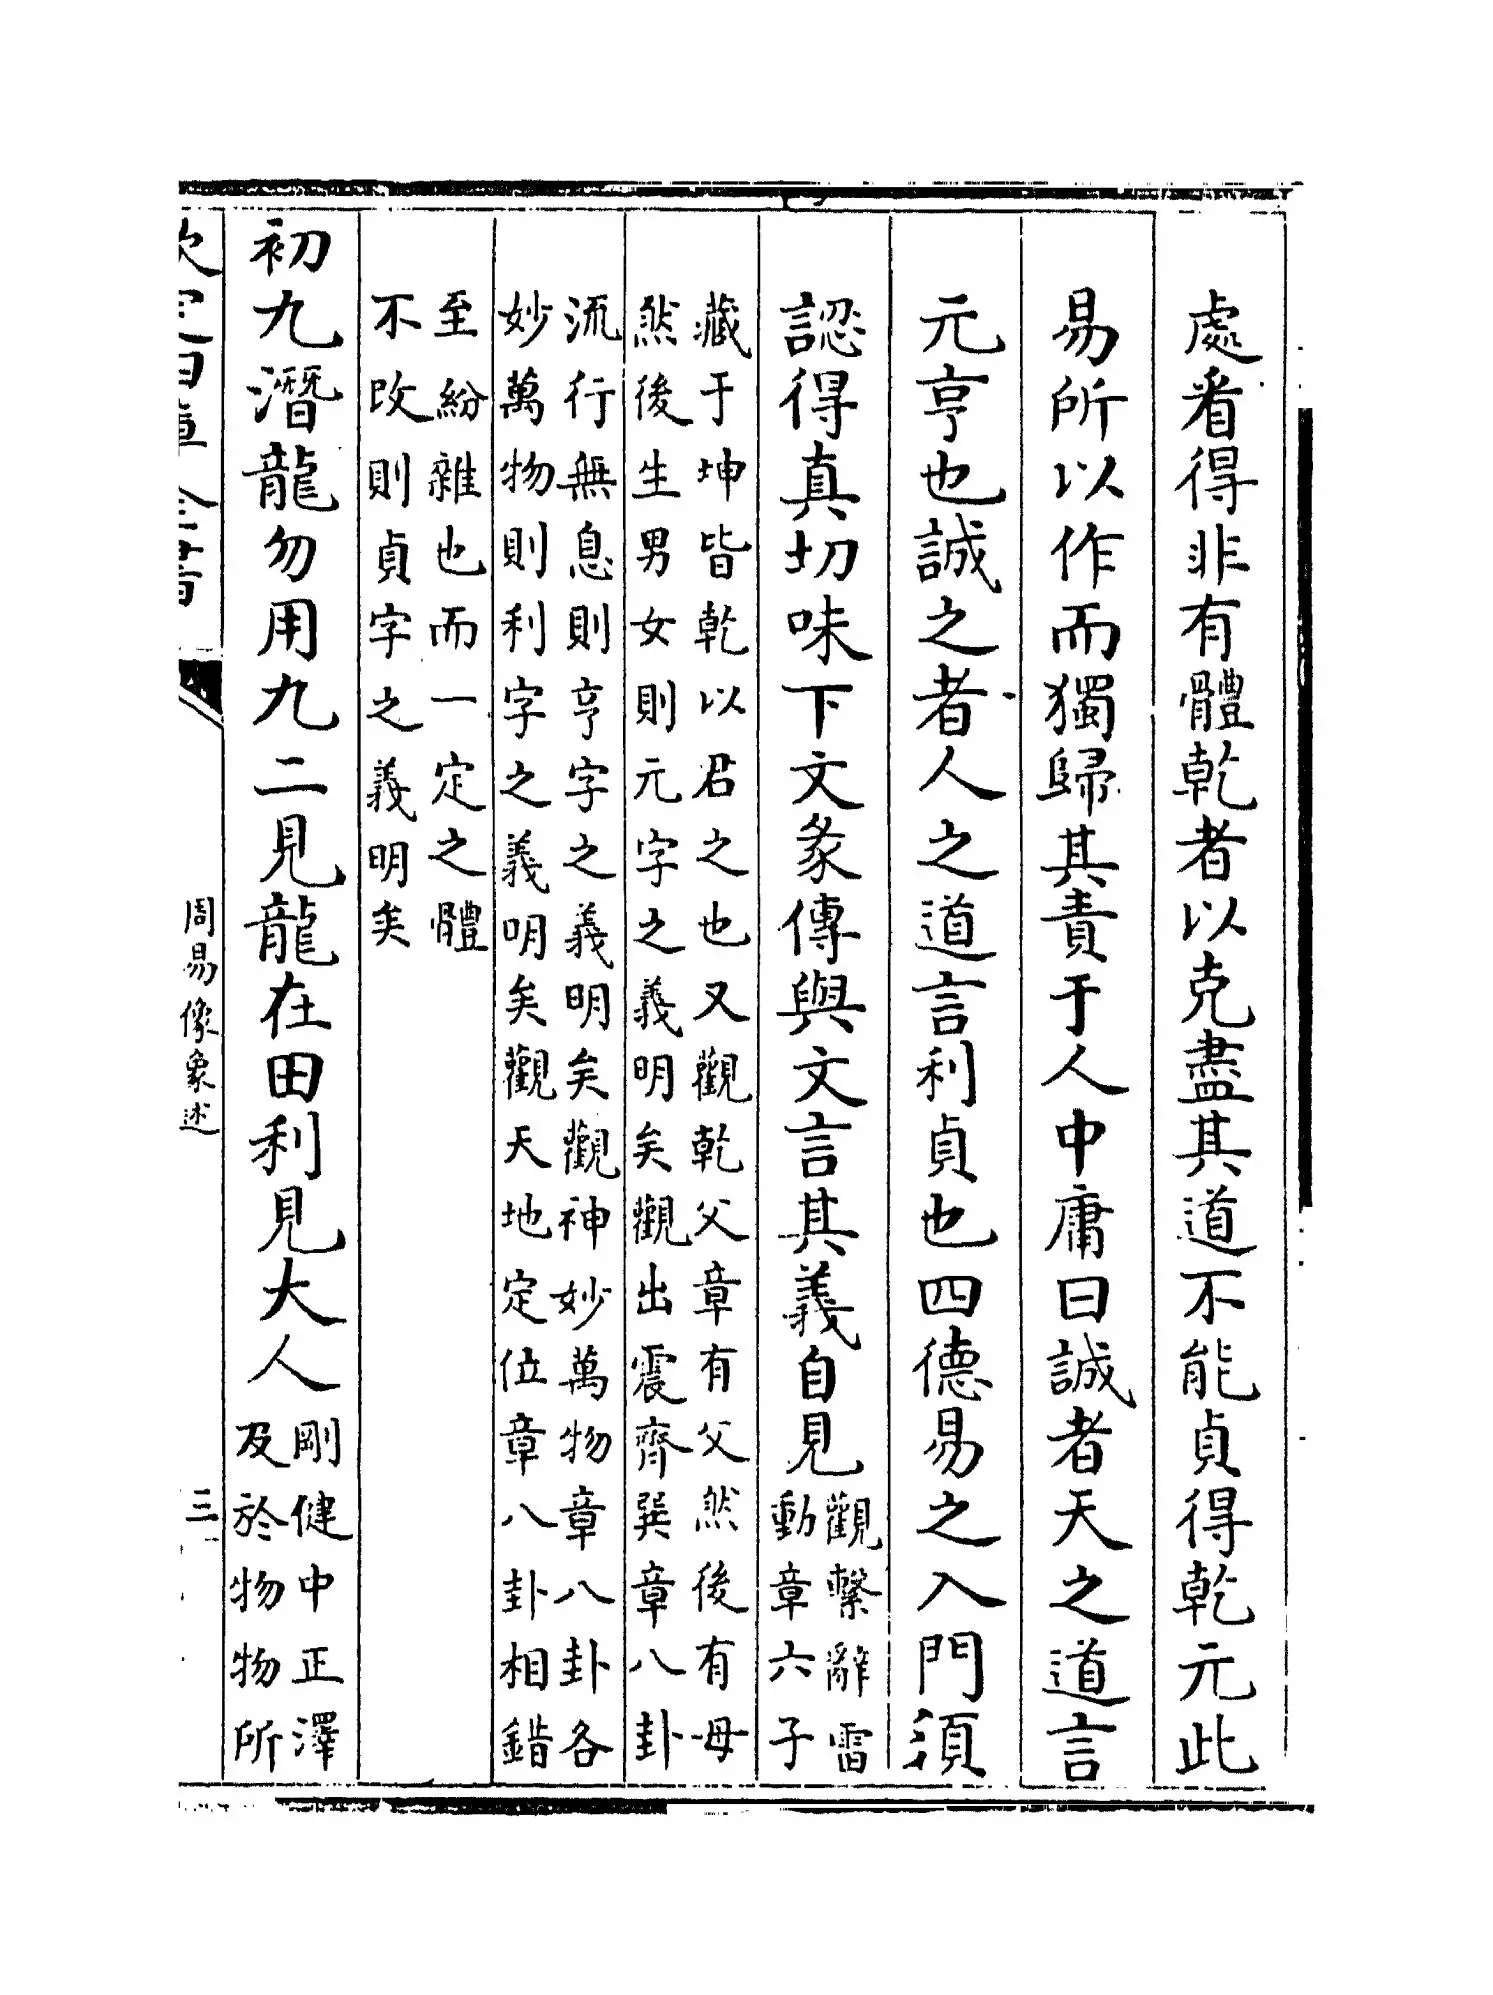 處看得非有體乾者以克盡其道不能貞得乾元此
易所以作而獨歸其責于人中庸曰誠者天之道言
元亨也誠之者人之道言利貞也四德易之入門須
認得真切味下文彖傳與文言其義自見觀繫辭雷
動章六子
藏于坤皆乾以君之也又觀乾父章有父然後有母
然後生男女則元字之義明矣觀出震齊巽章八卦
流行無息則亨字之義明矣觀神妙萬物章八卦各
妙萬物則利字之義明矣觀天地定位章八卦相錯
至紛雜也而一定之體
不改則貞字之義明矣
初九潛龍勿用九二見龍在田利見大人剛健中正澤
及於物物所
欽定四庫全書
周易像象述
三